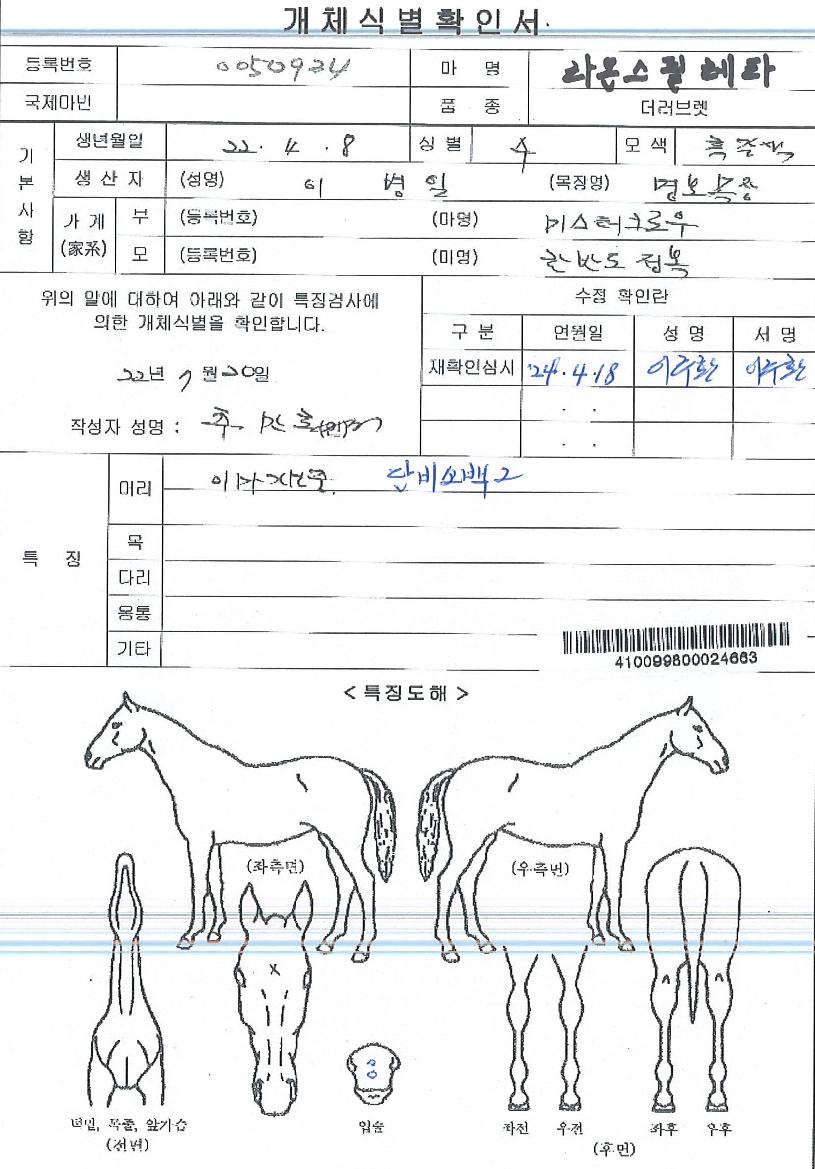 개체식별확인서
등록번호 0050924 마 명 라온스텔레타
국제마번 품 종 더러브렛
기본사항 생년월일 22. 4. 8 성별 수 모색 흑갈색
생산자 (성명) 이 병 일 (목장명) 명보목장
가계(家系) 부 (등록번호) (마명) 미스터크로우
모 (등록번호) (마명) 한반도정복
위의 말에 대하여 아래와 같이 특징검사에
의한 개체식별을 확인합니다.
22년 7월 20일
작성자 성명 :
수정 확인란
구분 연월일 성명 서명
재확인심시 '24. 4. 18
. .
. .
특 징
머리 이마자연모. 단비소백2
목
다리
몸통
기타
410099800024663
< 특징도해 >
(좌측면) (우측면)
턱밑, 목줄, 앞가슴
(전면)
입술
좌전 우전 좌후 우후
(후면)